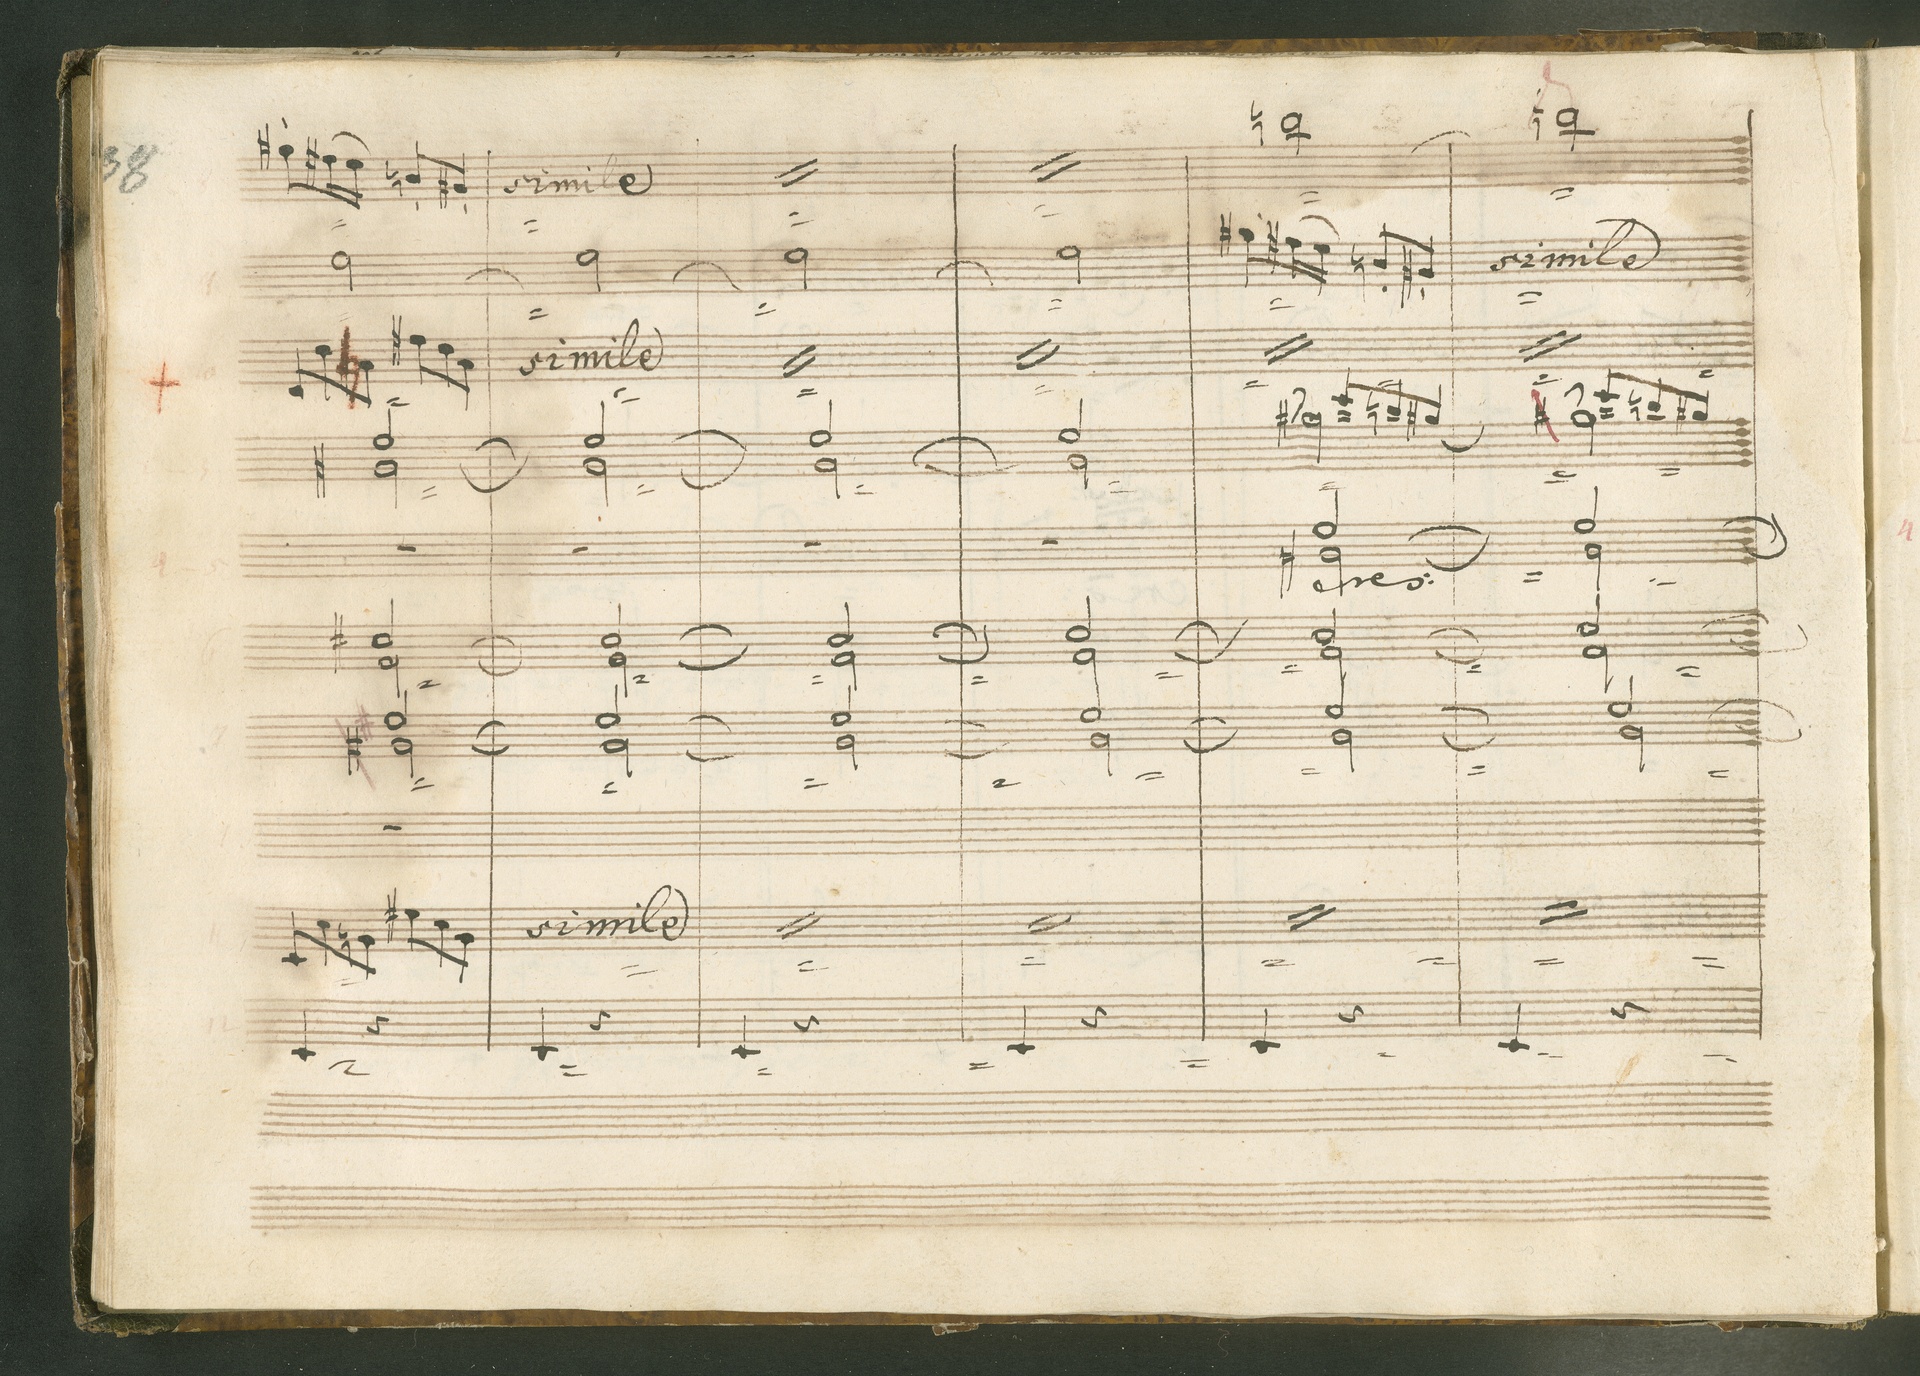 38
simile
simile
simile
cres:
simile